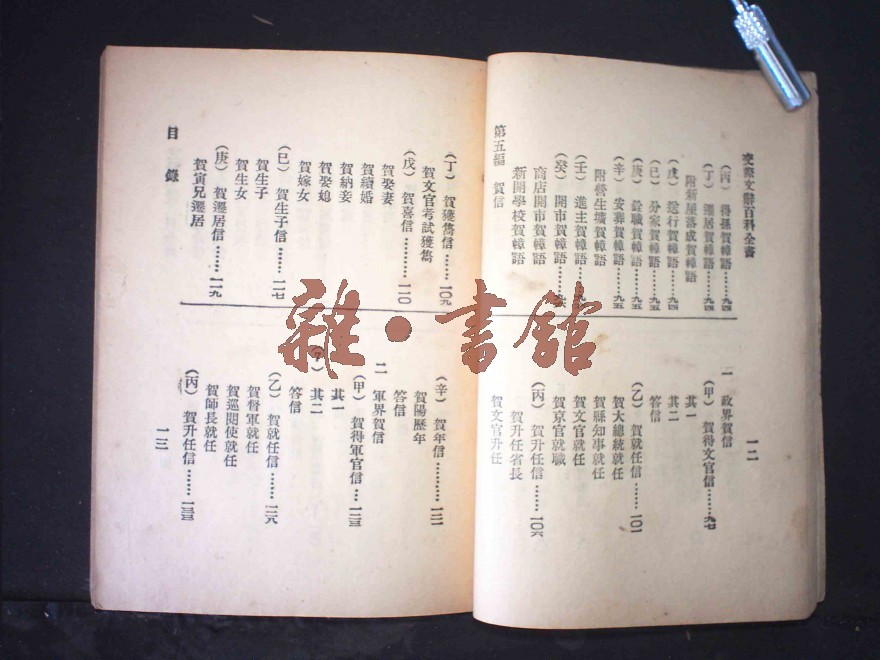 交際文辭百科全書
一二
(丙) 得孫賀幛語……九四
(丁) 遷居賀幛語……九四
附新屋落成賀幛語
(戊) 送行賀幛語……九四
(己) 分家賀幛語……九五
(庚) 銓職賀幛語……九五
(辛) 安葬賀幛語……九五
附營生壙賀幛語
(壬) 進主賀幛語
(癸) 開市賀幛語
商店開市賀幛語
新開學校賀幛語
第五編 賀信
一 政界賀信
(甲) 賀得文官信……九七
其一
其二
答信
(乙) 賀就任信……一〇一
賀大總統就任
賀縣知事就任
賀文官就任
賀京官就職
(丙) 賀升任信……一〇六
賀升任省長
賀文官升任
(丁) 賀獲雋信……一〇九
賀文官考試獲雋
(戊) 賀喜信……一一〇
賀娶妻
賀續婚
賀納妾
賀娶媳
賀嫁女
(己) 賀生子信……一一七
賀生子
賀生女
(庚) 賀遷居信……一一九
賀寅兄遷居
目錄
(辛) 賀年信……一二一
賀陽歷年
答信
二 軍界賀信
(甲) 賀得軍官信…一二三
其一
其二
答信
(乙) 賀就任信……一二八
賀督軍就任
賀巡閱使就任
賀師長就任
(丙) 賀升任信……一三三
一三
雜·書館